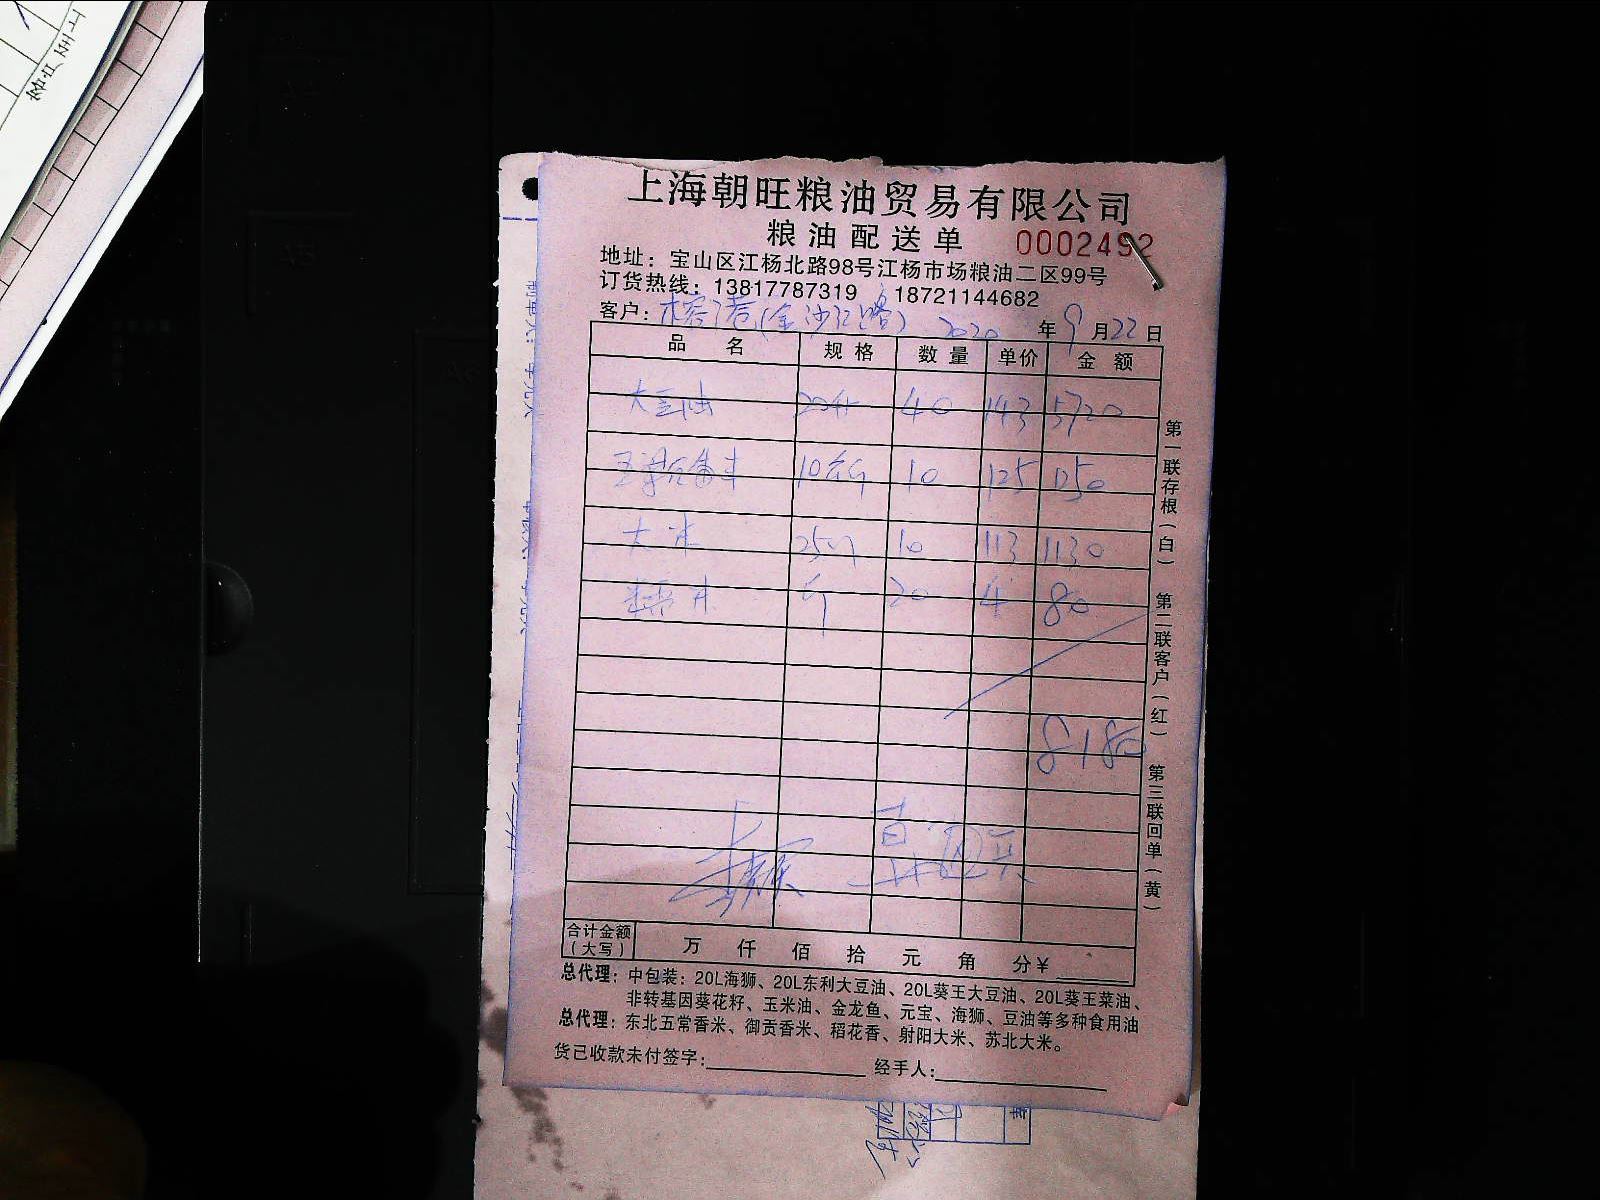 上海朝旺粮油贸易有限公司
粮油配送单 0002492
地址：宝山区江杨北路98号江杨市场粮油二区99号
订货热线：13817787319 18721144682
客户：榕港(金沙江路) 2020年9月22日
品名 规格 数量 单价 金额
大豆油 20升 40 143 5720
10斤 10 125 1250
大米 25 10 113 1130
糯米 斤 20 4 80
8180
合计金额（大写） 万 仟 佰 拾 元 角 分¥
总代理：中包装：20L海狮、20L东利大豆油、20L葵王大豆油、20L葵王菜油、
非转基因葵花籽、玉米油、金龙鱼、元宝、海狮、豆油等多种食用油
总代理：东北五常香米、御贡香米、稻花香、射阳大米、苏北大米。
货已收款未付签字： 经手人：
第一联存根（白） 第二联客户（红） 第三联回单（黄）